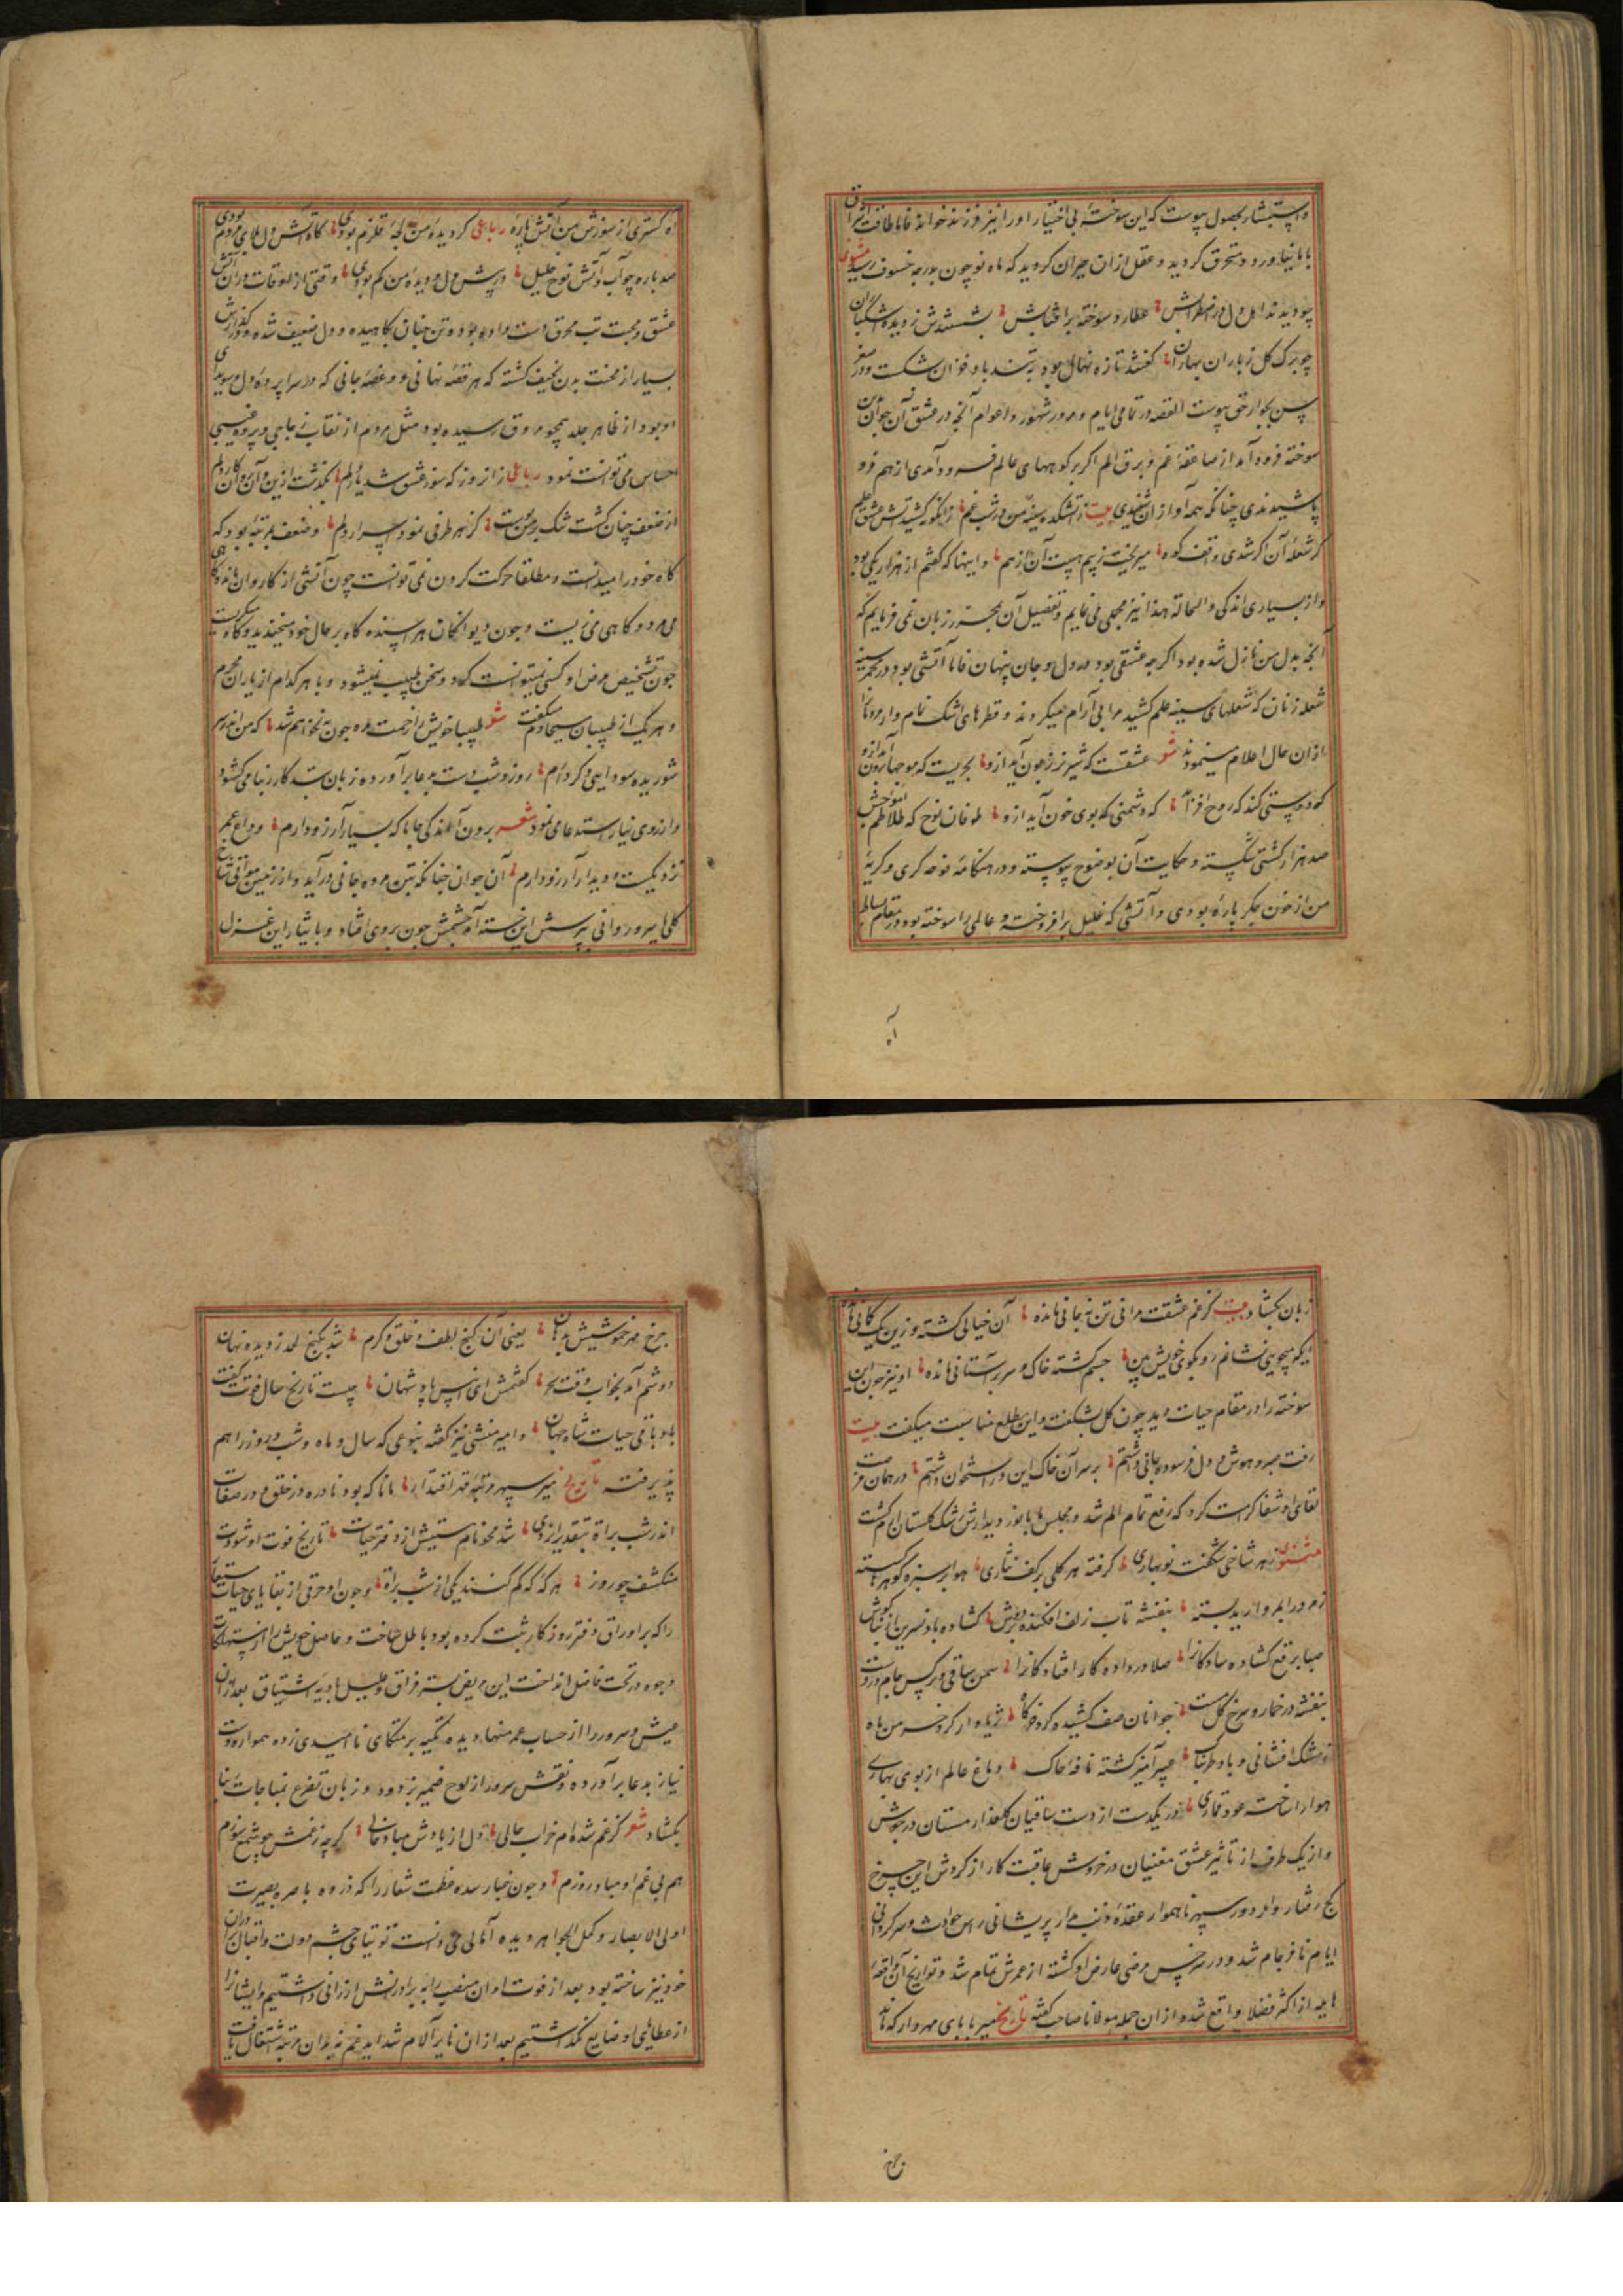 و استبشار بحصول پیوست که این سوخته بی اختیار او را نیز فرزند خوانده فاما طاقت
با ما نیاورد و محترق گردید و عقل از آن حیران گردید که ماه نو چون بدرجه خسوف رسید مثنوی
چو دیدند اهل دل در اضطرابش عطارد سوخته بر آفتابش بشستندش ز دیده اشکباران
چو برگ گل ز باران بهاران گفتند تازه نهال بود بتند باد خزان شکست و در صغر
سن بجوار حق پیوست القصه در تمامی ایام و مرور شهور و اعوام آنچه در عشق آن جوان بدین
سوخته فرود آمد از صاعقه غم و برق الم اگر بر کوههای عالم فرود آمدی از هم فرو
پاشیدندی چنانکه همه آواز آن شنیدی بیت ز آتشکده سینه من در شب غم زانگونه کشید آتش عشق علم
گر شعله آن اگر شدی واقف کوه میریخت ز بیم هیبت آن از هم و اینها که گفتم از هزار یکی بود
و از بسیاری اندکی و الحالة هذا نیز مجملی می نمایم و تفصیل آن بجز زبان نمی فرمایم که
آنچه بدل من نازل شده بود اگرچه عشقی بود در دل و جان پنهان فاما آتشی بود در مجمر سینه
شعله زنان که شعلهای سینه علم کشید مرا بی آرام میکردند و قطرهای اشک تمام وار مردم را
از آن حال اعلام مینمودند شعر عشقست که شیر نر زبون آید ازو بحریست که موجها برون آید ازو
گه دوستی کند که روح افزاید گه دشمنی که بوی خون آید ازو طوفان نوح که تلاطم امواجش
صد هزار کشتی شکسته و حکایت آن بوضوح پیوسته و در هنگامه نوحه گری و گریه
من از خون جگر پاره بودی و آتشی که خلیل بر افروخته و عالمی را سوخته بود در مقام بساط
آه
آه گستری از سوزش من آتش پاره رباعی گر دیده من لجه قلزم بودی گاه آتش دل بجای مردم بودی
صد باره چو آب و آتش نوح و خلیل در پیش دل و دیده من گم بودی وقتی از اوقات در آن آتش
عشق و محبت تب محرق دست داده بود و تن چنان کاهیده و دل ضعیف شده و گدازش
بسیار از محنت بدن نحیف گشته که هر قصه نهانی و غصه جانی که در سراپرده دل و سویدای
او بود از ظاهر جلد همچو عروق رسیده بود مثل مردم از نقاب زجاجی و پرده عنبی
احساس می توانست نمود رباعی زان روز که سوز عشق شد یار دلم بگذشت ازین و آن کار دلم
از ضعف چنان گشت تنک بر من پوست کز هر طرفی نمود اسرار دلم و ضعف بمرتبه بود که
گاه خود را میدانست و مطلقا حرکت کردن نمی توانست چون آتشی از کاروان مانده گاهی
می مرد و گاهی می زیست و چون دیوانگان هراسنده گاه بر حال خود میخندید و گاه میگریست
چون تشخیص مرض او کسی نمیتوانست کرد و سخن طبیب نمیشنود و با هر کدام از یاران محرم
و هر یک از طبیبان مسیحا دم میگفت شعر طبیبا خویش را زحمت مده چون به نخواهم شد که من اندر سر
شوریده سودایی دگر دارم روز و شب دست بدعا بر آورده زبان بتکرار ربنا می گشود
و از روی نیاز استدعا می نمود شعر برون آ اندکی جانا که بسیار آرزو دارم وداع عمر
نزدیکست و دیدار آرزو دارم آن جوان چنانکه بتن مرده جانی درآید و از زمین
گلی یا سرو روانی بپرسش این خسته آمد چشمش چون بروی افتاد و با ایثار این غزل
زبان بگشاد بیت کز غم عشقت مرا نی تن نه جانی مانده آن خیالی گشته وزین یک گمانی مانده
ایکه میجویی نشانم رو بکوی خویش بین جسم گشته خاک و سر بر آستانی مانده او نیز چون این
سوخته را در مقام حیات دید چون گل بشکفت و این مطلع مناسب میگفت بیت
رفت صبر و هوش و دل فرسوده جانی داشتم بر سر آن خاک این در استخوان داشتم در همان فرصت
لقای او شفا کرامت کرد که رفع تمام الم شد و مجلس ما بنور دیدارش رشک گلستان ارم گشت
مثنوی ز هر شاخی شکفته نوبهاری گرفته هر گلی بر کف نثاری هوا بر سبزه گوهر گسسته
زمرد را بمروارید بسته بنفشه تاب زلف افکنده بر دوش گشاده باد نسرین را بناگوش
صبا برقع گشاده سادگانرا صلا در داده کار افتادگانرا سمن ساقی و نرگس جام در دست
بنفشه در خمار و سرخ گل مست جوانان صف کشیده گرد خرگاه ثریا وار گرد خرمن ماه
ز مشک افشانی و باد طربناک عبیر آمیز گشته نافه خاک دماغ عالم از بوی بهاری
هوا را ساخته عود قماری در یکدست از دست ساقیان گلعذار مستان در جوش
و از یک طرف از تاثیر عشق مغنیان در خروش عاقبت کار از گردش این چرخ
کج رفتار و ادوار دور سپهر ناهموار عقده ذنب وار پریشانی راس حوادث و سرگردانی
ایام نافرجام شد و در سرخس مرضی عارض او گشته از عمرش تمام شد و تواریخ آن واقعه
هایله از اکثر فضلا واقع شده از آن جمله مولانا صاحب گفته تاریخ میر بابای مهروار که ماند
چرخ
چرخ مهر خموشیش بدهان یعنی آن گنج لطف و خلق و کرم شد بکنج لحد ز دیده نهان
دوشم آمد بخواب وقت سحر گفتمش ای انیس ماه و شهان چیست تاریخ سال فوتت گفت
باد باقی حیات شاه جهان و امیر منشی نیز گفته بنوعی که سال و ماه و شب و روز را هم
پذیرفته تاریخ میر سپهر مرتبه قهر اقتدار بابا که بود نادره در خلق و در صفات
اندر شب براة بتقدیر ایزدی شد محو نام هستیش از دفتر حیات تاریخ فوت او شودت
منکشف چو روز هرگه که کم کنند یکی از شب براة و چون او حرفی از بقایای حیات مستعار
را که بر اوراق دفتر روزگار ثبت کرده بود باطل ساخت و حاصل خویش را از
وجوه در تحت فاضل انداخت این مریض بستر فراق و علیل هاویه اشتیاق بعد از آن
عیش و سرور را از حساب عمر منها دیده و تکیه بر متکای ناامیدی زده همواره دست
نیاز بدعا برآورده و نقش سرور از لوح ضمیر بزدود و زبان تضرع بمناجات
بگشاد شعر کز غم شده ام خراب حالی دل از یادش مباد خالی گر چه ز غمش چو شمع سوزم
هم بی غم او مباد روزم و چون غبار سده عظمت شعار را که ذروه باصره بصیرت
اولی الابصار و کحل الجواهر دیده آمالی می دانست توتیای چشم دولت و اقبال
خود نیز ساخته بود بعد از فوت او آن منصب را به برادرانش ارزانی داشتیم و ایشانرا
از عطایای او ضایع نگذاشتیم بعد از آن نایره آلام شداید غم نه بدان مرتبه اشتعال یافت